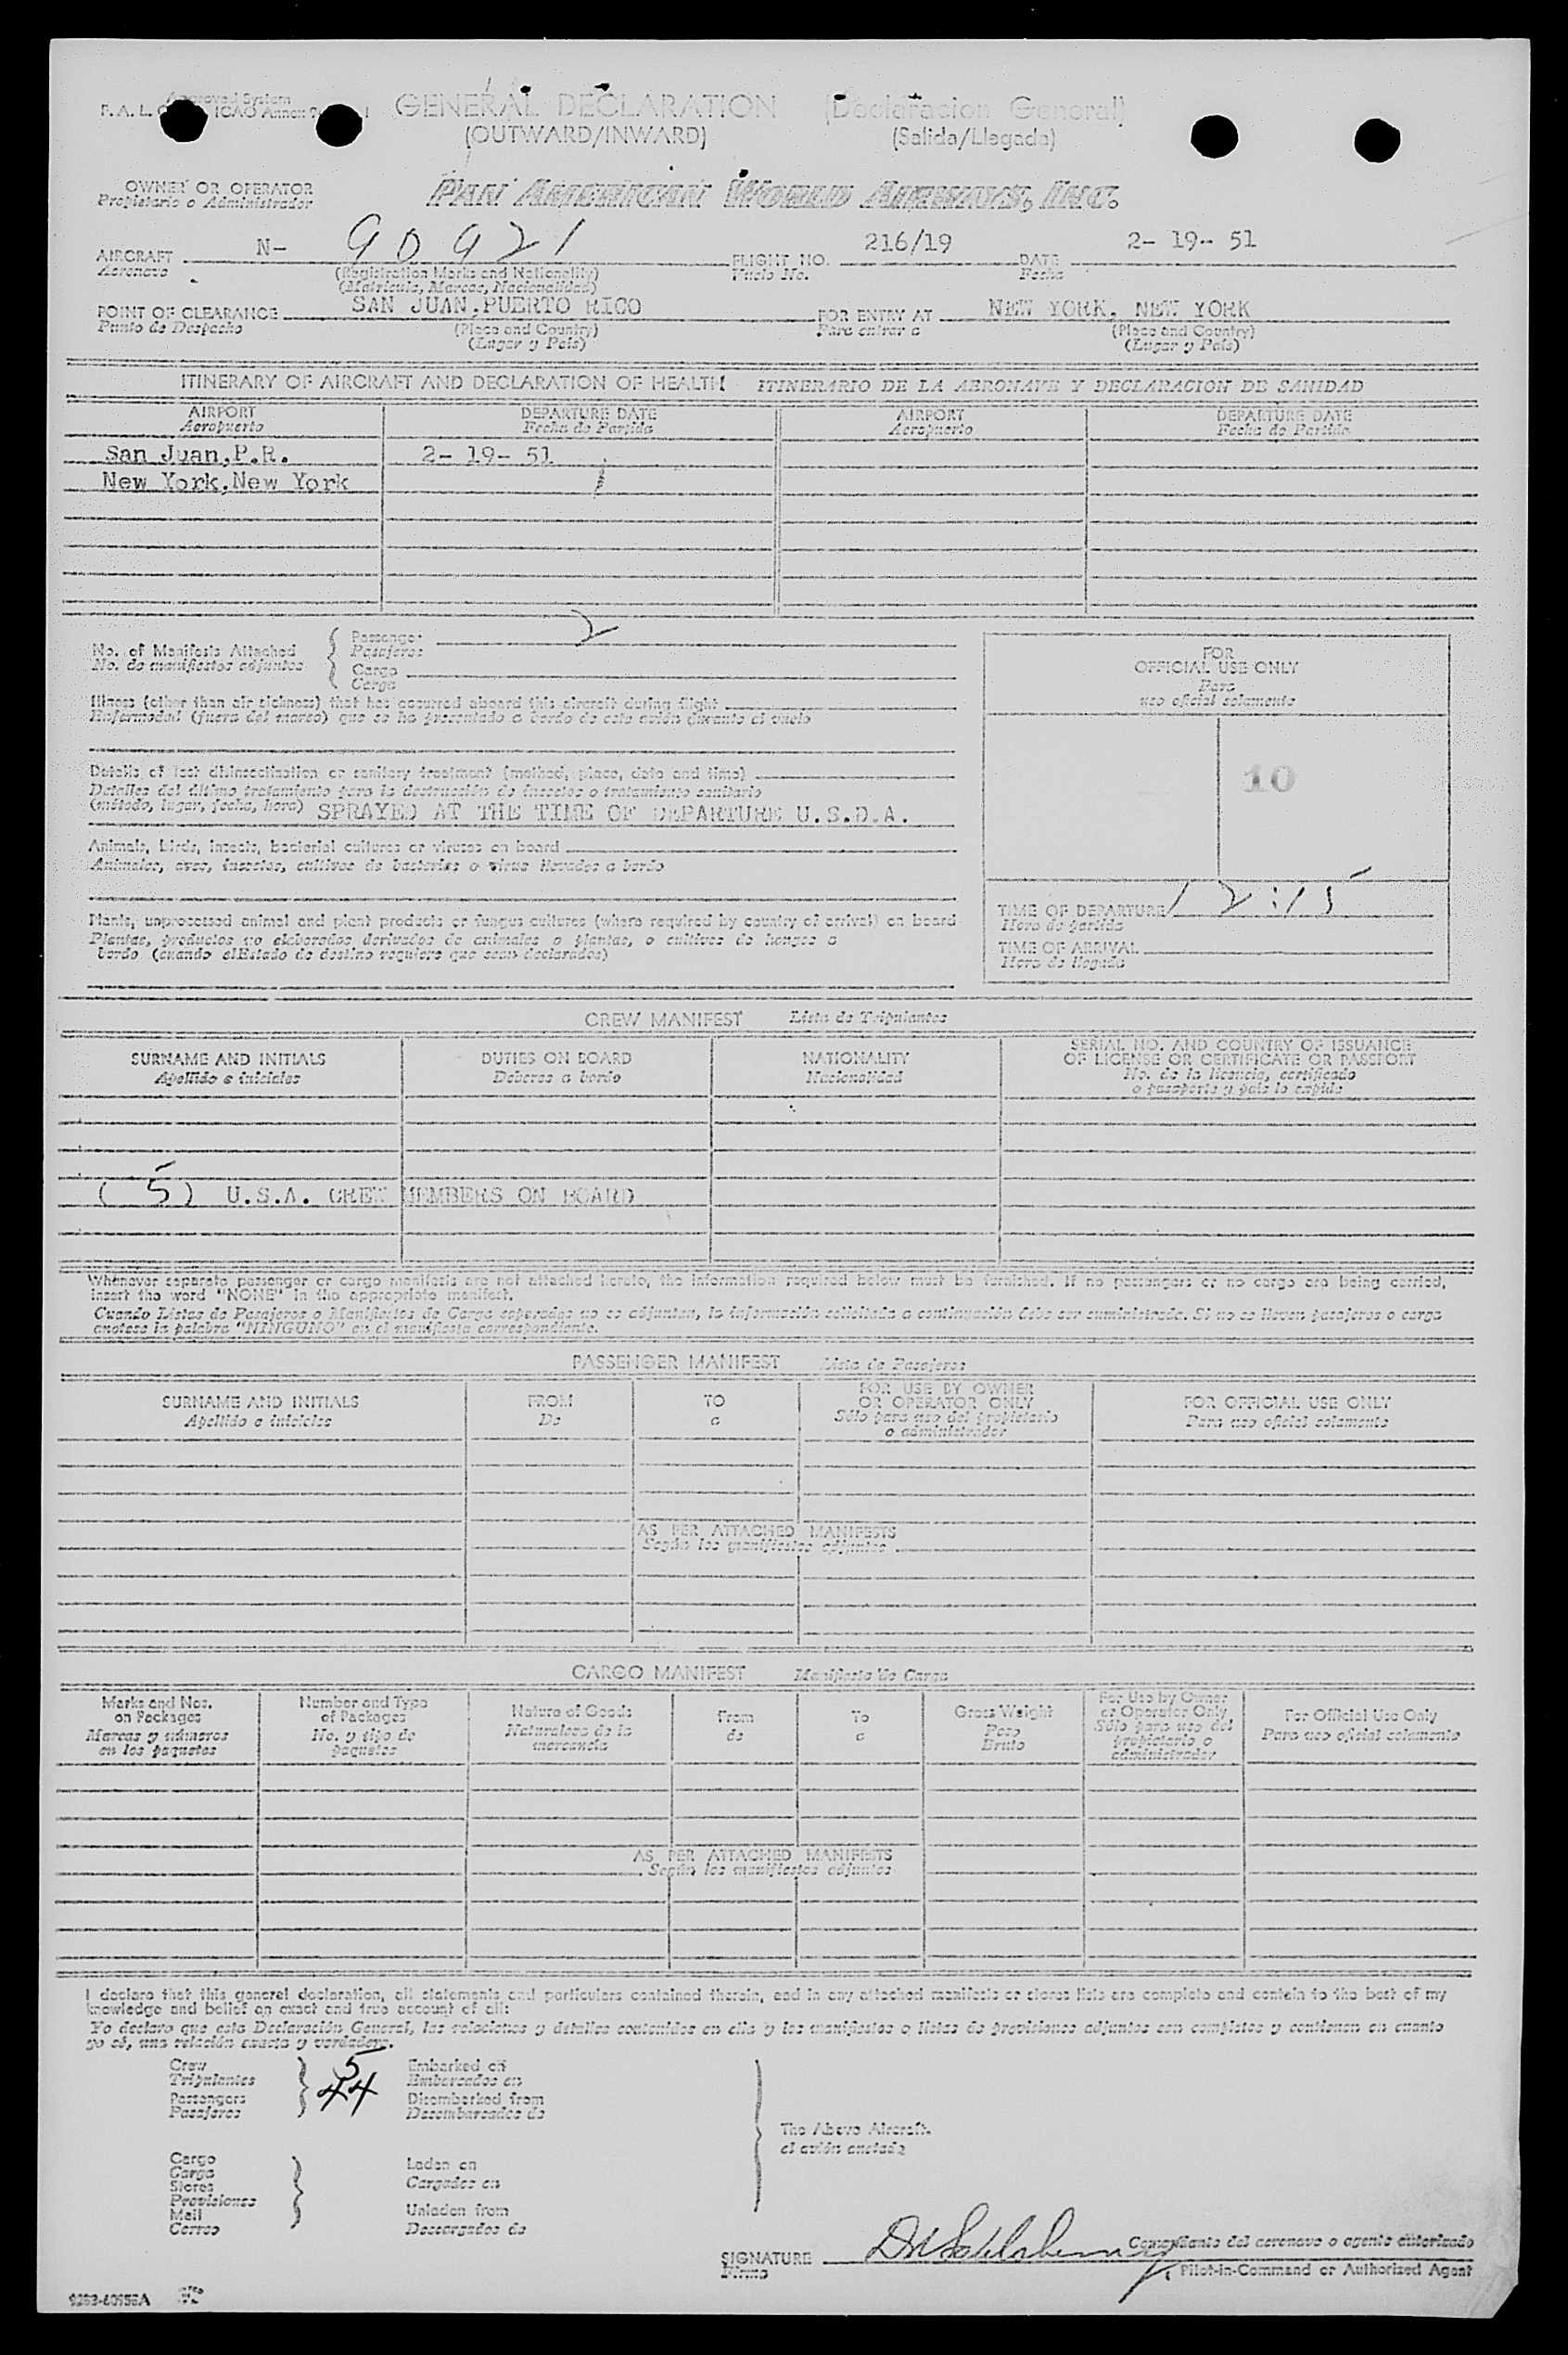 Approved System
F. A. L. ICAO Annex 9
GENERAL DECLARATION (Declaracion General)
(OUTWARD/INWARD) (Salida/Llegada)
OWNER OR OPERATOR
Propietario o Administrador
PAN AMERICAN WORLD AIRWAYS, INC.
AIRCRAFT N- 90921 FLIGHT NO. 216/19 DATE 2- 19- 51
Aeronave (Registration Marks and Nationality) Vuelo No. Fecha
(Matricula, Marcas, Nacionalidad)
POINT OF CLEARANCE SAN JUAN,PUERTO RICO FOR ENTRY AT NEW YORK, NEW YORK
Punto de Despacho (Place and Country) Para entrar a (Place and Country)
(Lugar y País) (Lugar y País)
ITINERARY OF AIRCRAFT AND DECLARATION OF HEALTH ITINERARIO DE LA AERONAVE Y DECLARACION DE SANIDAD
AIRPORT DEPARTURE DATE AIRPORT DEPARTURE DATE
Aeropuerto Fecha de Partida Aeropuerto Fecha de Partida
San Juan,P.R. 2- 19- 51
New York,New York
No. of Manifests Attached
No. de manifiestos adjuntos
Passenger 2
Pasajeros
Cargo
Carga
Illness (other than air sickness) that has occured aboard this aircraft during flight
Enfermedad (fuera del mareo) que se ha presentado a bordo de este avión durante el vuelo
Details of last disinsectisation or sanitary treatment (method, place, date and time)
Detalles del último tratamiento para la destrucción de insectos o tratamiento sanitario
(método, lugar, fecha, hora) SPRAYED AT THE TIME OF DEPARTURE U.S.D.A.
Animals, birds, insects, bacterial cultures or viruses on board
Animales, aves, insectos, cultivos de bacterias o virus llevados a bordo
Plants, unprocessed animal and plant products or fungus cultures (where required by country of arrival) on board
Plantas, productos no elaborados derivados de animales o plantas, o cultivos de hongos a
bordo (cuando el Estado de destino requiere que sean declarados)
FOR
OFFICIAL USE ONLY
Para
uso oficial solamente
10
TIME OF DEPARTURE 12:15
Hora de partida
TIME OF ARRIVAL
Hora de llegada
CREW MANIFEST Lista de Tripulantes
SURNAME AND INITIALS DUTIES ON BOARD NATIONALITY SERIAL NO. AND COUNTRY OF ISSUANCE
OF LICENSE OR CERTIFICATE OR PASSPORT
Apellido e iniciales Deberes a bordo Nacionalidad No. de la licencia, certificado
o pasaporte y país lo expide
( 5 ) U.S.A. CREW MEMBERS ON BOARD
Whenever separate passenger or cargo manifests are not attached hereto, the information required below must be furnished. If no passengers or no cargo are being carried,
insert the word "NONE" in the appropriate manifest.
Cuando Listas de Pasajeros o Manifiestos de Carga separadas no se adjuntan, la información solicitada a continuación debe ser suministrada. Si no se llevan pasajeros o carga
anotese la palabra "NINGUNO" en el manifiesto correspondiente.
PASSENGER MANIFEST Lista de Pasajeros
SURNAME AND INITIALS FROM TO FOR USE BY OWNER
OR OPERATOR ONLY FOR OFFICIAL USE ONLY
Apellido e iniciales De a Sólo para uso del propietario
o administrador Para uso oficial solamente
AS PER ATTACHED MANIFESTS
Según los manifiestos adjuntos
CARGO MANIFEST Manifiesto de Carga
Marks and Nos.
on Packages
Marcas y números
en los paquetes
Number and Type
of Packages
No. y tipo de
paquetes
Nature of Goods
Naturaleza de la
mercancía
From
de
To
a
Gross Weight
Peso
Bruto
For Use by Owner
or Operator Only
Sólo para uso del
propietario o
administrador
For Official Use Only
Para uso oficial solamente
AS PER ATTACHED MANIFESTS
Según los manifiestos adjuntos
I declare that this general declaration, all statements and particulars contained therein, and in any attached manifests or stores lists are complete and contain to the best of my
knowledge and belief an exact and true account of all:
Yo declaro que esta Declaración General, las relaciones y detalles contenidos en ella y los manifiestos o listas de provisiones adjuntos son completos y contienen en cuanto
yo sé, una relación exacta y verdadera.
Crew 5 Embarked on
Tripulantes Embarcados en
Passengers 44 Disembarked from
Pasajeros Desembarcados de
The Above Aircraft.
el avión anotado
Cargo Laden on
Carga Cargados en
Stores
Provisiones Unladen from
Mail
Correo Descargados de
Comandante del aeronave o agente autorizado
SIGNATURE
Firma Pilot-in-Command or Authorized Agent